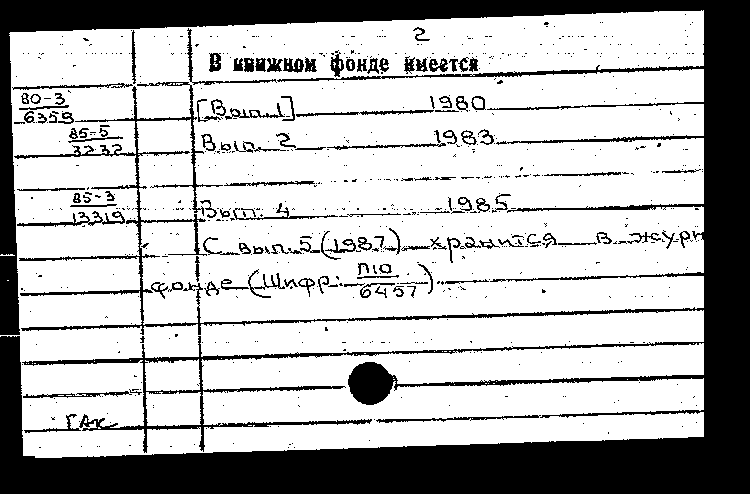 2
В книжном фонде имеется
80-3
6358 [Вып. 1] 1980
85-5
3232 Вып. 2 1983
85-3
13319 Вып. 4 1985
С вып. 5 (1987) хранится в журн
фонде (Шифр: П10
6457)
ГАК